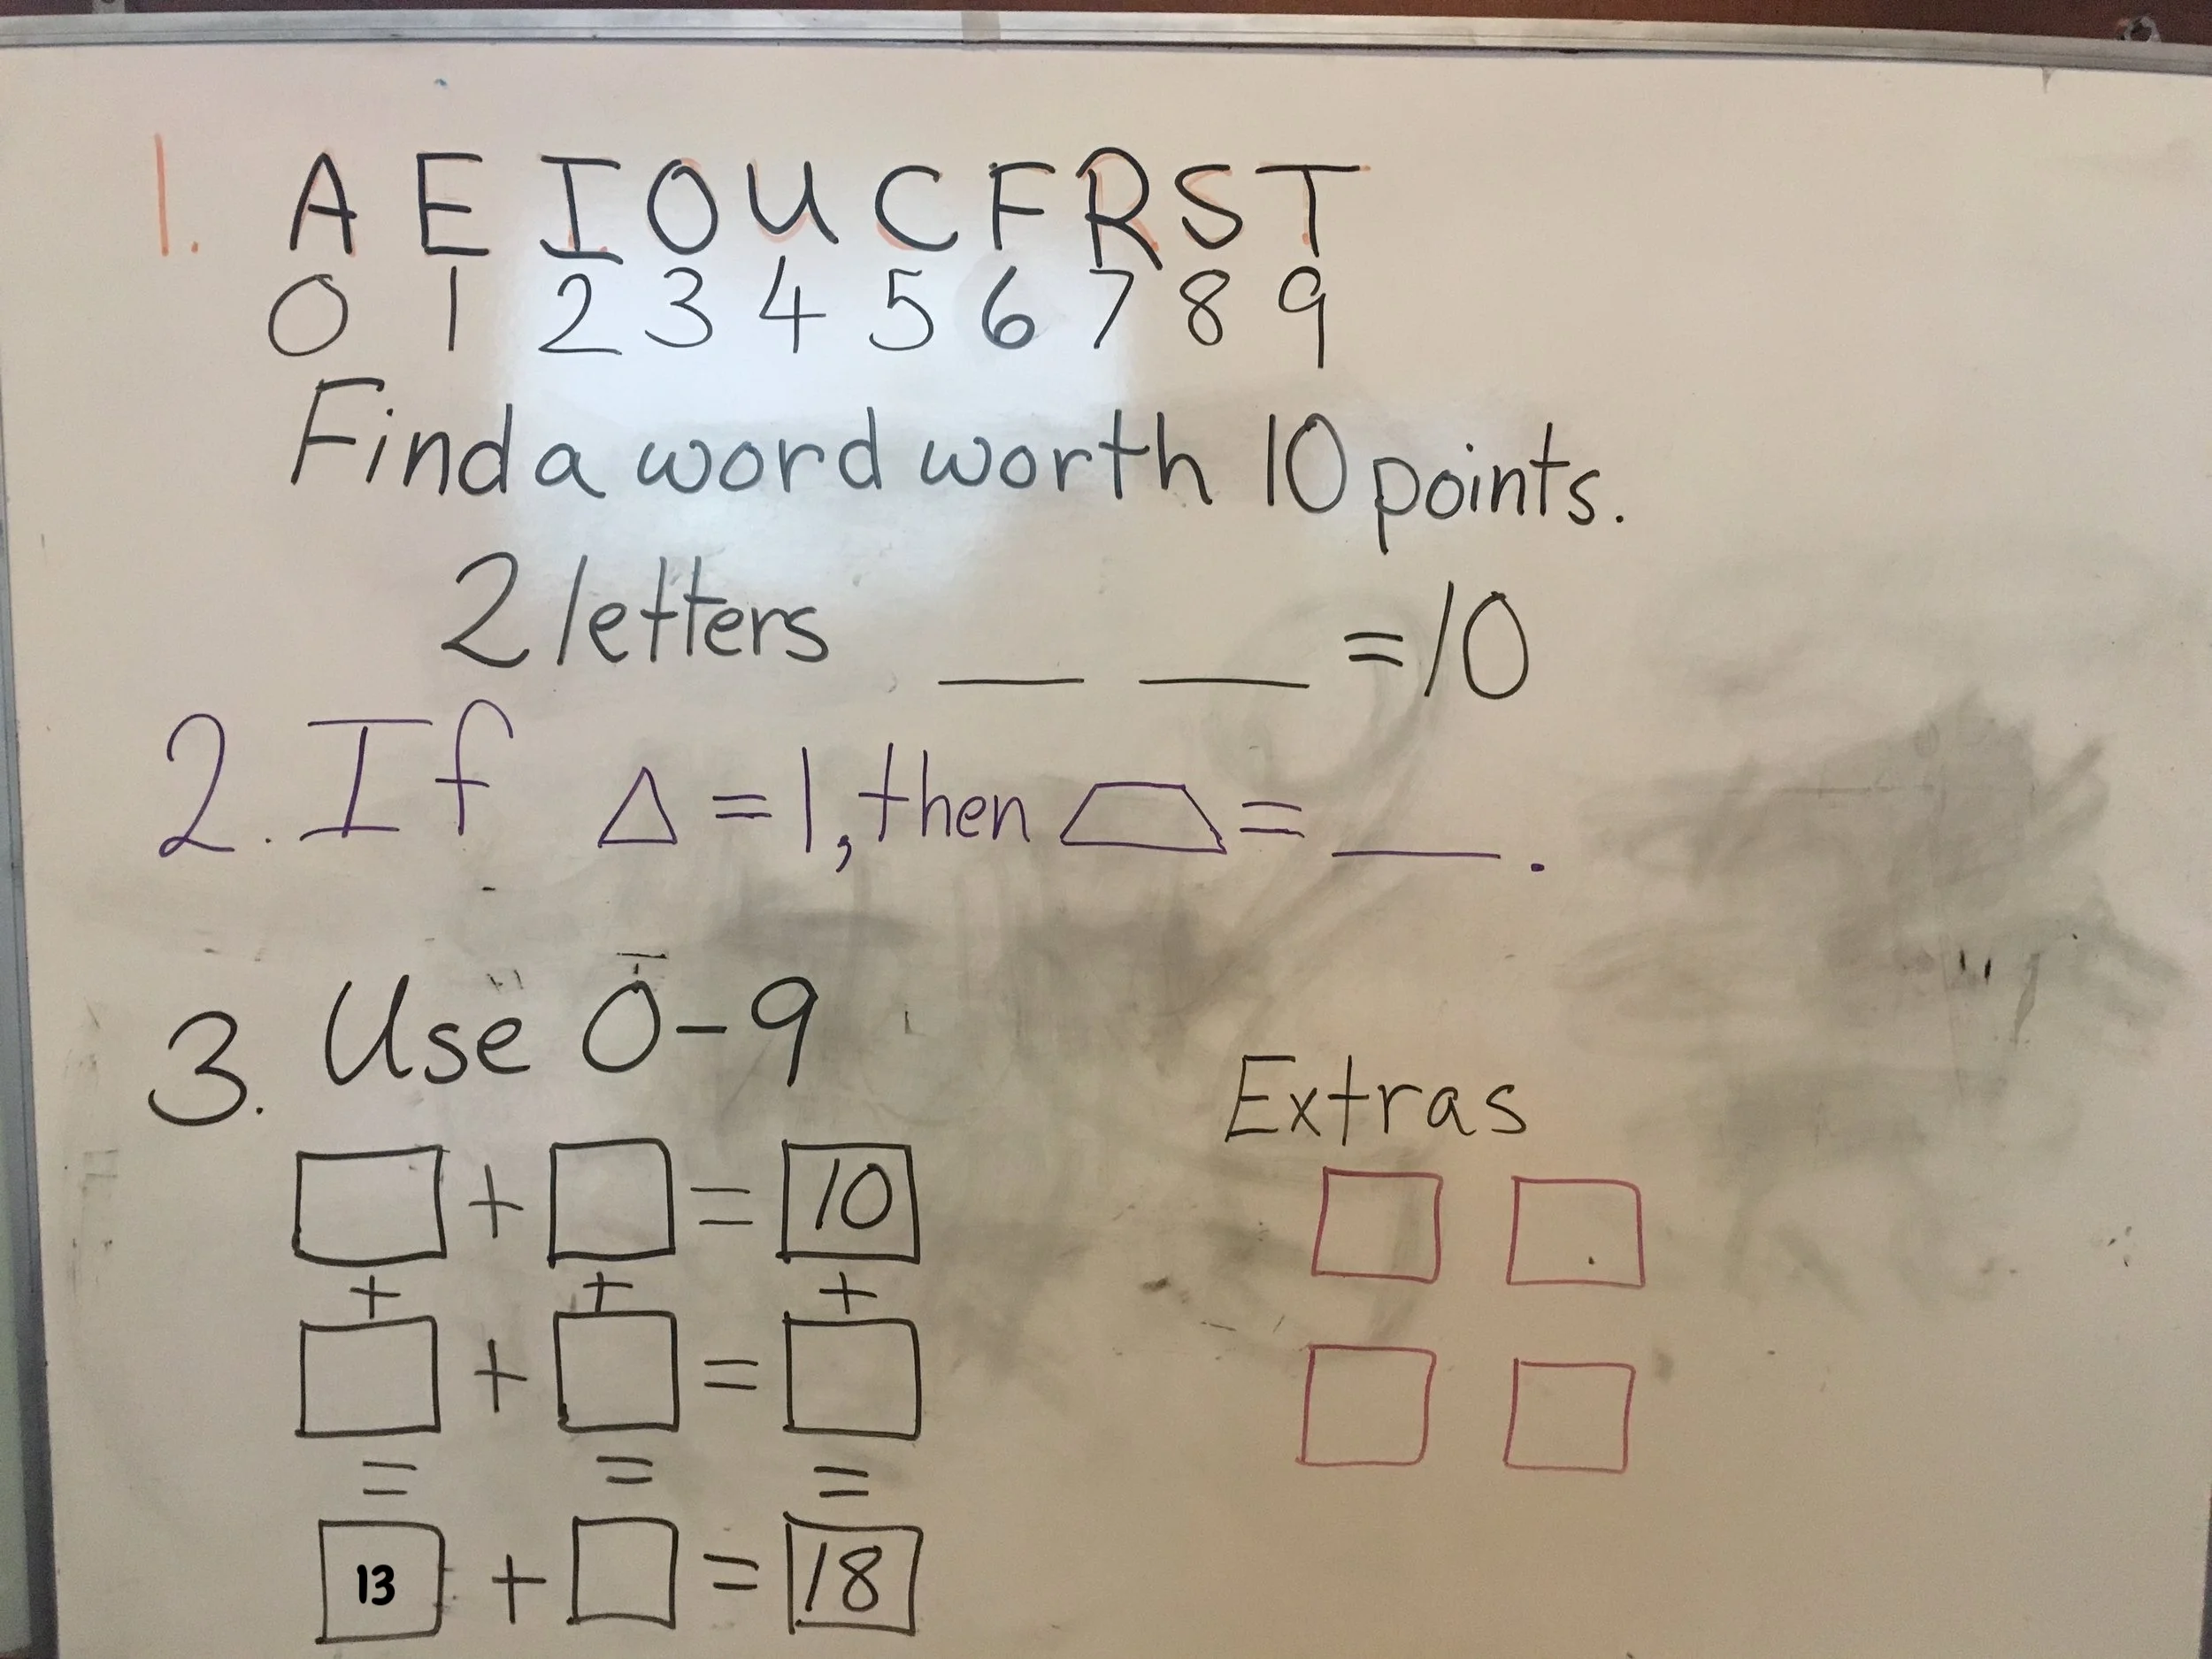 1. A E I O U C F R S T
0 1 2 3 4 5 6 7 8 9
Find a word worth 10 points.
2 letters __ __ = 10
2. If △ = 1, then ⏢ = __.
3. Use 0-9
Extras
□ + □ = 10
+ + +
□ + □ = □
= = =
13 + □ = 18